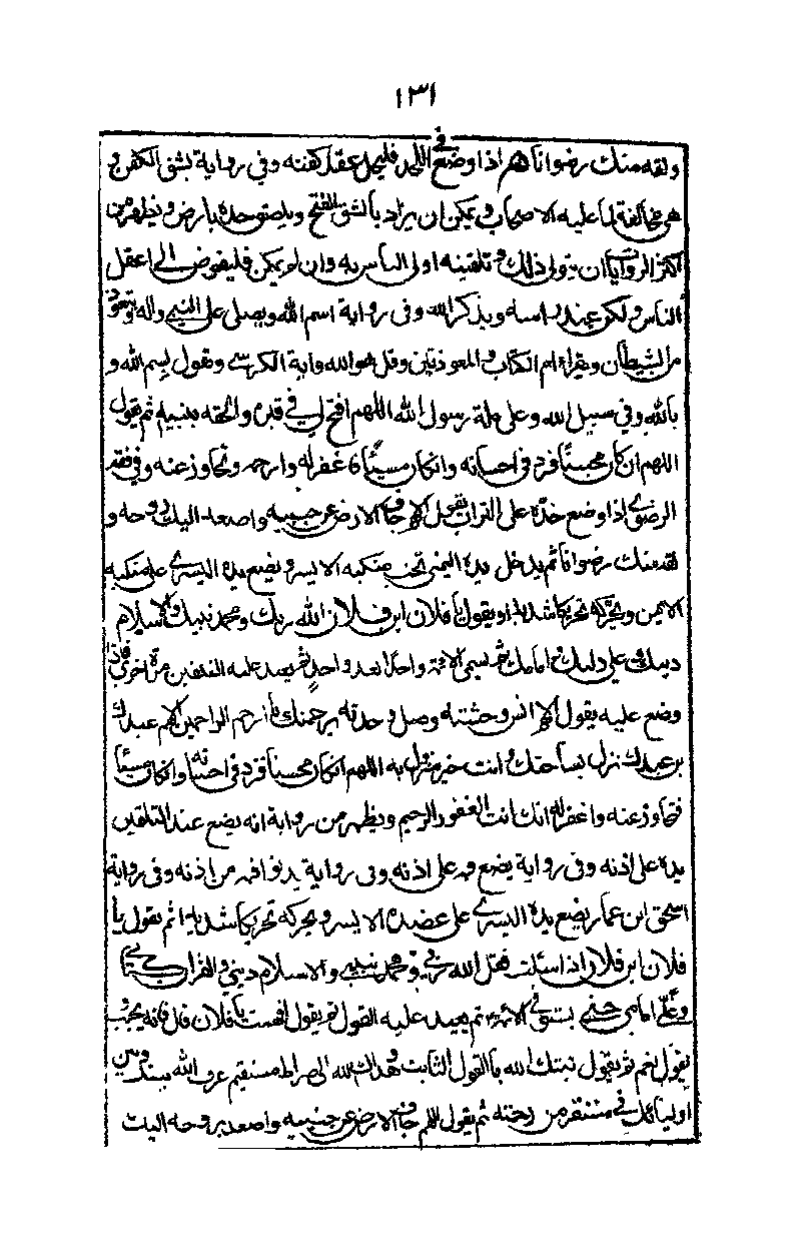 ١٣١
ولقه منك رضوانا هم اذا وضع في اللحد فليحل عقد كفنه وفي رواية بشق الكفن و
هي مخالفة لما عليه الاصحاب ويمكن ان يراد بالشق الفتح ويلصق خده بارض ويظهر من
اكثر الروايات ان يتولى ذلك وتلقينه اولى الناس به وان لم يكن فليفوض الى اعقل
الناس وليكن عند راسه ويذكر الله وفى رواية اسم الله ويصلى على النبي واله ويتعوذ
من الشيطان ويقراء ام الكتاب والمعوذتين وقل هو الله واية الكرسي ويقول بسم الله و
بالله وفي سبيل الله وعلى ملة رسول الله اللهم افتح له في قبره والحقه بنبيه ثم يقول
اللهم ان كان محسنا فزد في احسانه وان كان مسيئا فاغفر له وارحمه وتجاوز عنه وفي فقه
الرضوي اذا وضع خده على التراب يقول اللهم جاف الارض عن جنبيه واصعد اليك روحه و
لقه منك رضوانا ثم يدخل يده اليمنى تحت منكبه الايسر ويضع يده اليسرى على منكبه
الايمن ويحركه تحريكا شديدا ويقول يا فلان ابن فلان الله ربك ومحمد نبيك والاسلام
دينك وعلي وليك وامامك ثم يسمى الائمة واحدا بعد واحد ثم يعيد عليه التلقين مرة اخرى فاذا
وضع عليه يقول اللهم انس وحشته وصل وحدته برحمتك يا ارحم الراحمين اللهم عبدك
بن عبدك نزل بساحتك وانت خير منزول به اللهم ان كان محسنا فزد في احسانه وان كان مسيئا
فتجاوز عنه واغفر له انك انت الغفور الرحيم ويظهر من رواية انه يضع عند التلقين
يده على اذنه وفى رواية يضع فمه على اذنه وفى رواية يدنو فاه من اذنه وفى رواية
اسحق ابن عمار يضع يده اليسرى على عضده الايسر ويحركه تحريكا شديدا ثم يقول يا
فلان ابن فلان اذا سئلت فقل الله ربي ومحمد نبيي والاسلام ديني والقران كتابي
وعلي امامي حتى يستوفي الائمة ثم يعيد عليه القول ثم يقول افهمت يا فلان قال فانه يجيب و
يقول نعم ثم يقول ثبتك الله بالقول الثابت وهداك الله الى صراط مستقيم عرف الله بينك وبين
اوليائك في مستقر من رحمته ثم يقول اللهم جاف الارض عن جنبيه واصعد بروحه اليك